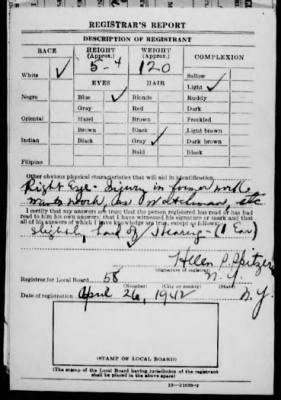 REGISTRAR'S REPORT
DESCRIPTION OF REGISTRANT
RACE
HEIGHT (Approx.)
WEIGHT (Approx.)
COMPLEXION
White ✓
5-4
120
Sallow
EYES
HAIR
Light ✓
Negro
Blue ✓
Blonde
Ruddy
Gray
Red
Dark
Oriental
Hazel
Brown
Freckled
Brown
Black
Light brown
Indian
Black
Gray ✓
Dark brown
Bald
Black
Filipino
Other obvious physical characteristics that will aid in identification
Right Eye - Injury in former work
wants work, as Watchman, etc
I certify that my answers are true; that the person registered has read or has had
read to him his own answers; that I have witnessed his signature or mark and that
all of his answers of which I have knowledge are true, except as follows:
Slightly hard of Hearing - (1 Ear)
Helen P. Spitzer
(Signature of registrar)
Registrar for Local Board 58 N.Y. N.Y.
(Number) (City or county) (State)
Date of registration April 26, 1942
(STAMP OF LOCAL BOARD)
(The stamp of the Local Board having jurisdiction of the registrant
shall be placed in the above space)